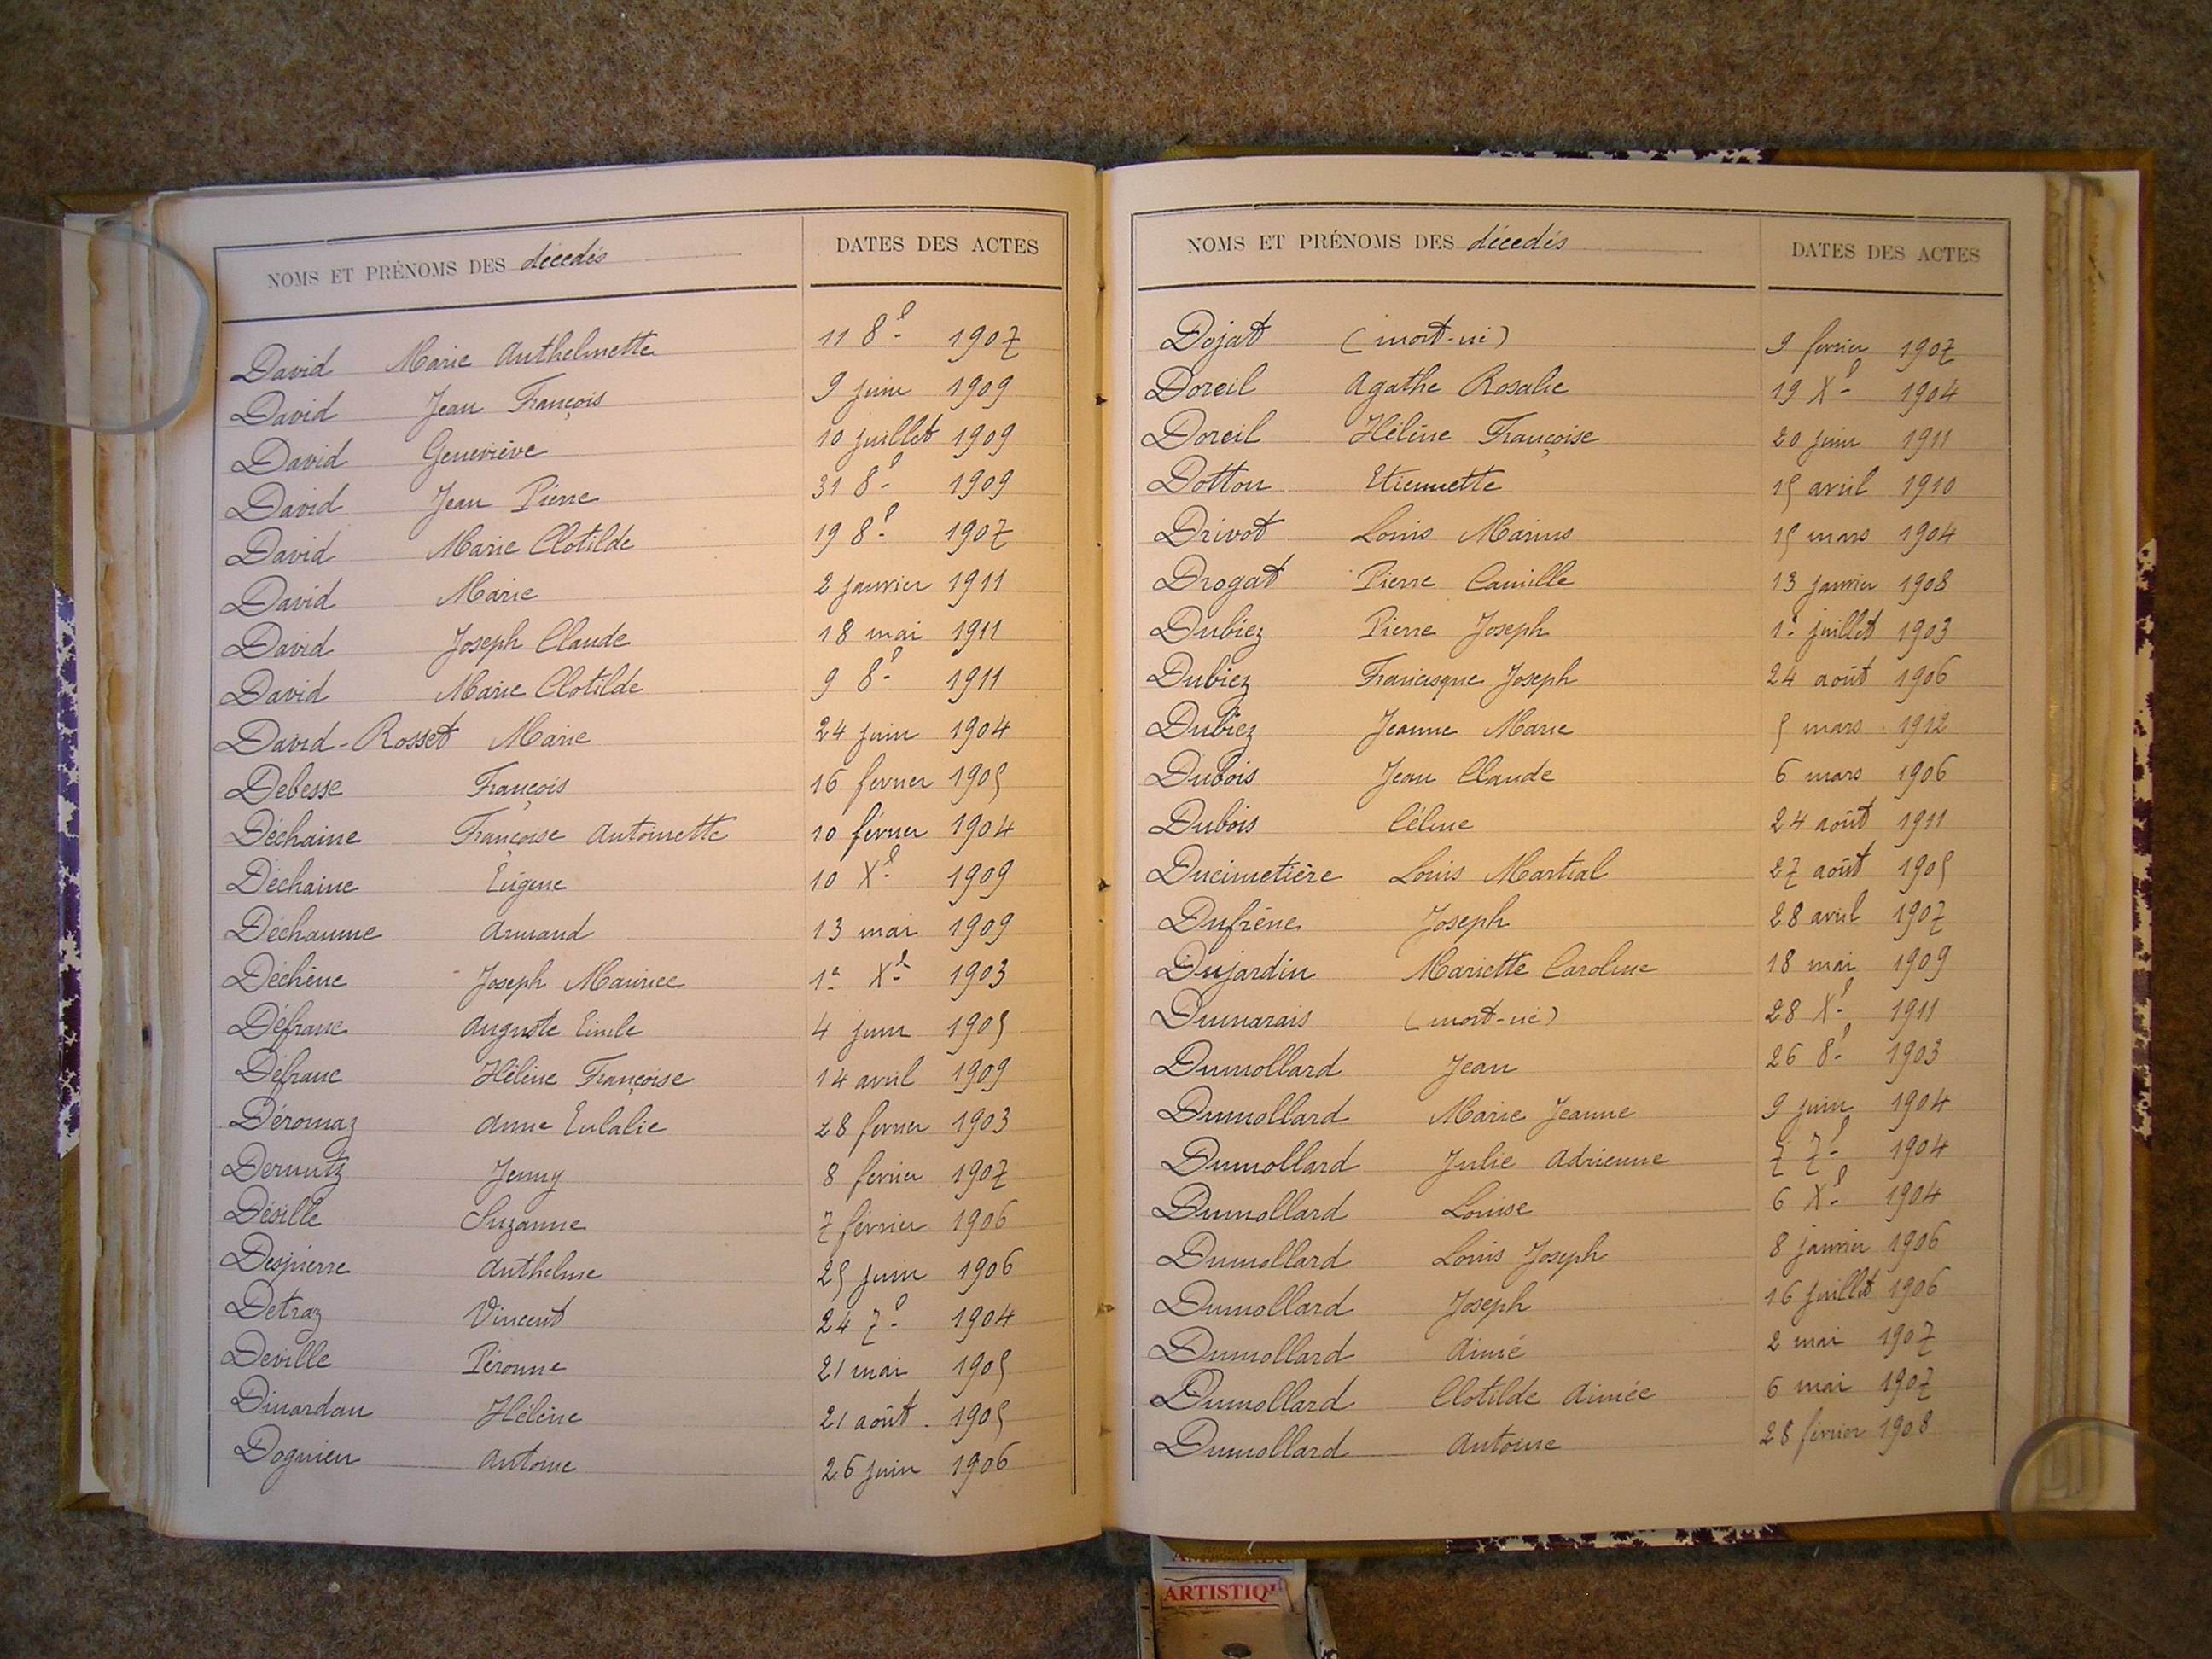 NOMS ET PRÉNOMS DES décedés DATES DES ACTES
David Marie Anthelmette 11 8e 1907
David Jean François 9 juin 1909
David Geneviève 10 juillet 1909
David Jean Pierre 31 8e 1909
David Marie Clotilde 19 8e 1907
David Marie 2 janvier 1911
David Joseph Claude 18 mai 1911
David Marie Clotilde 9 8e 1911
David-Rosset Marie 24 juin 1904
Debesse François 16 fevrier 1905
Déchaine Françoise Antoinette 10 février 1904
Déchaine Eugène 10 Xe 1909
Déchaume Armand 13 mai 1909
Déchêne Joseph Maurice 1er Xe 1903
Défranc Auguste Emile 4 juin 1905
Défranc Hélène Françoise 14 avril 1909
Déromaz Anne Eulalie 28 fevrier 1903
Dermutz Jenny 8 fevrier 1907
Désille Suzanne 7 février 1906
Despierre Anthelme 25 juin 1906
Detraz Vincent 24 7e 1904
Deville Péronne 21 mai 1905
Dinardau Hélène 21 août 1905
Dognieu Antoine 26 juin 1906
NOMS ET PRÉNOMS DES décedés DATES DES ACTES
Dojat (mort-né) 9 fevrier 1907
Doreil Agathe Rosalie 19 Xe 1904
Doreil Hélène Françoise 20 juin 1911
Dotton Etiennette 15 avril 1910
Drivot Louis Marius 15 mars 1904
Drogat Pierre Camille 13 janvier 1908
Dubiez Pierre Joseph 1er juillet 1903
Dubiez Francisque Joseph 24 août 1906
Dubiez Jeanne Marie 5 mars 1912
Dubois Jean Claude 6 mars 1906
Dubois Céline 24 août 1911
Ducimetière Louis Martial 27 août 1905
Dufrêne Joseph 28 avril 1907
Dujardin Mariette Caroline 18 mai 1909
Dumarais (mort-né) 28 Xe 1911
Dumollard Jean 26 8e 1903
Dumollard Marie Jeanne 9 juin 1904
Dumollard Julie Adrienne 7 7e 1904
Dumollard Louise 6 Xe 1904
Dumollard Louis Joseph 8 janvier 1906
Dumollard Joseph 16 juillet 1906
Dumollard Aimé 2 mai 1907
Dumollard Clotilde Aimée 6 mai 1907
Dumollard Antoine 28 février 1908
ARTISTIQU